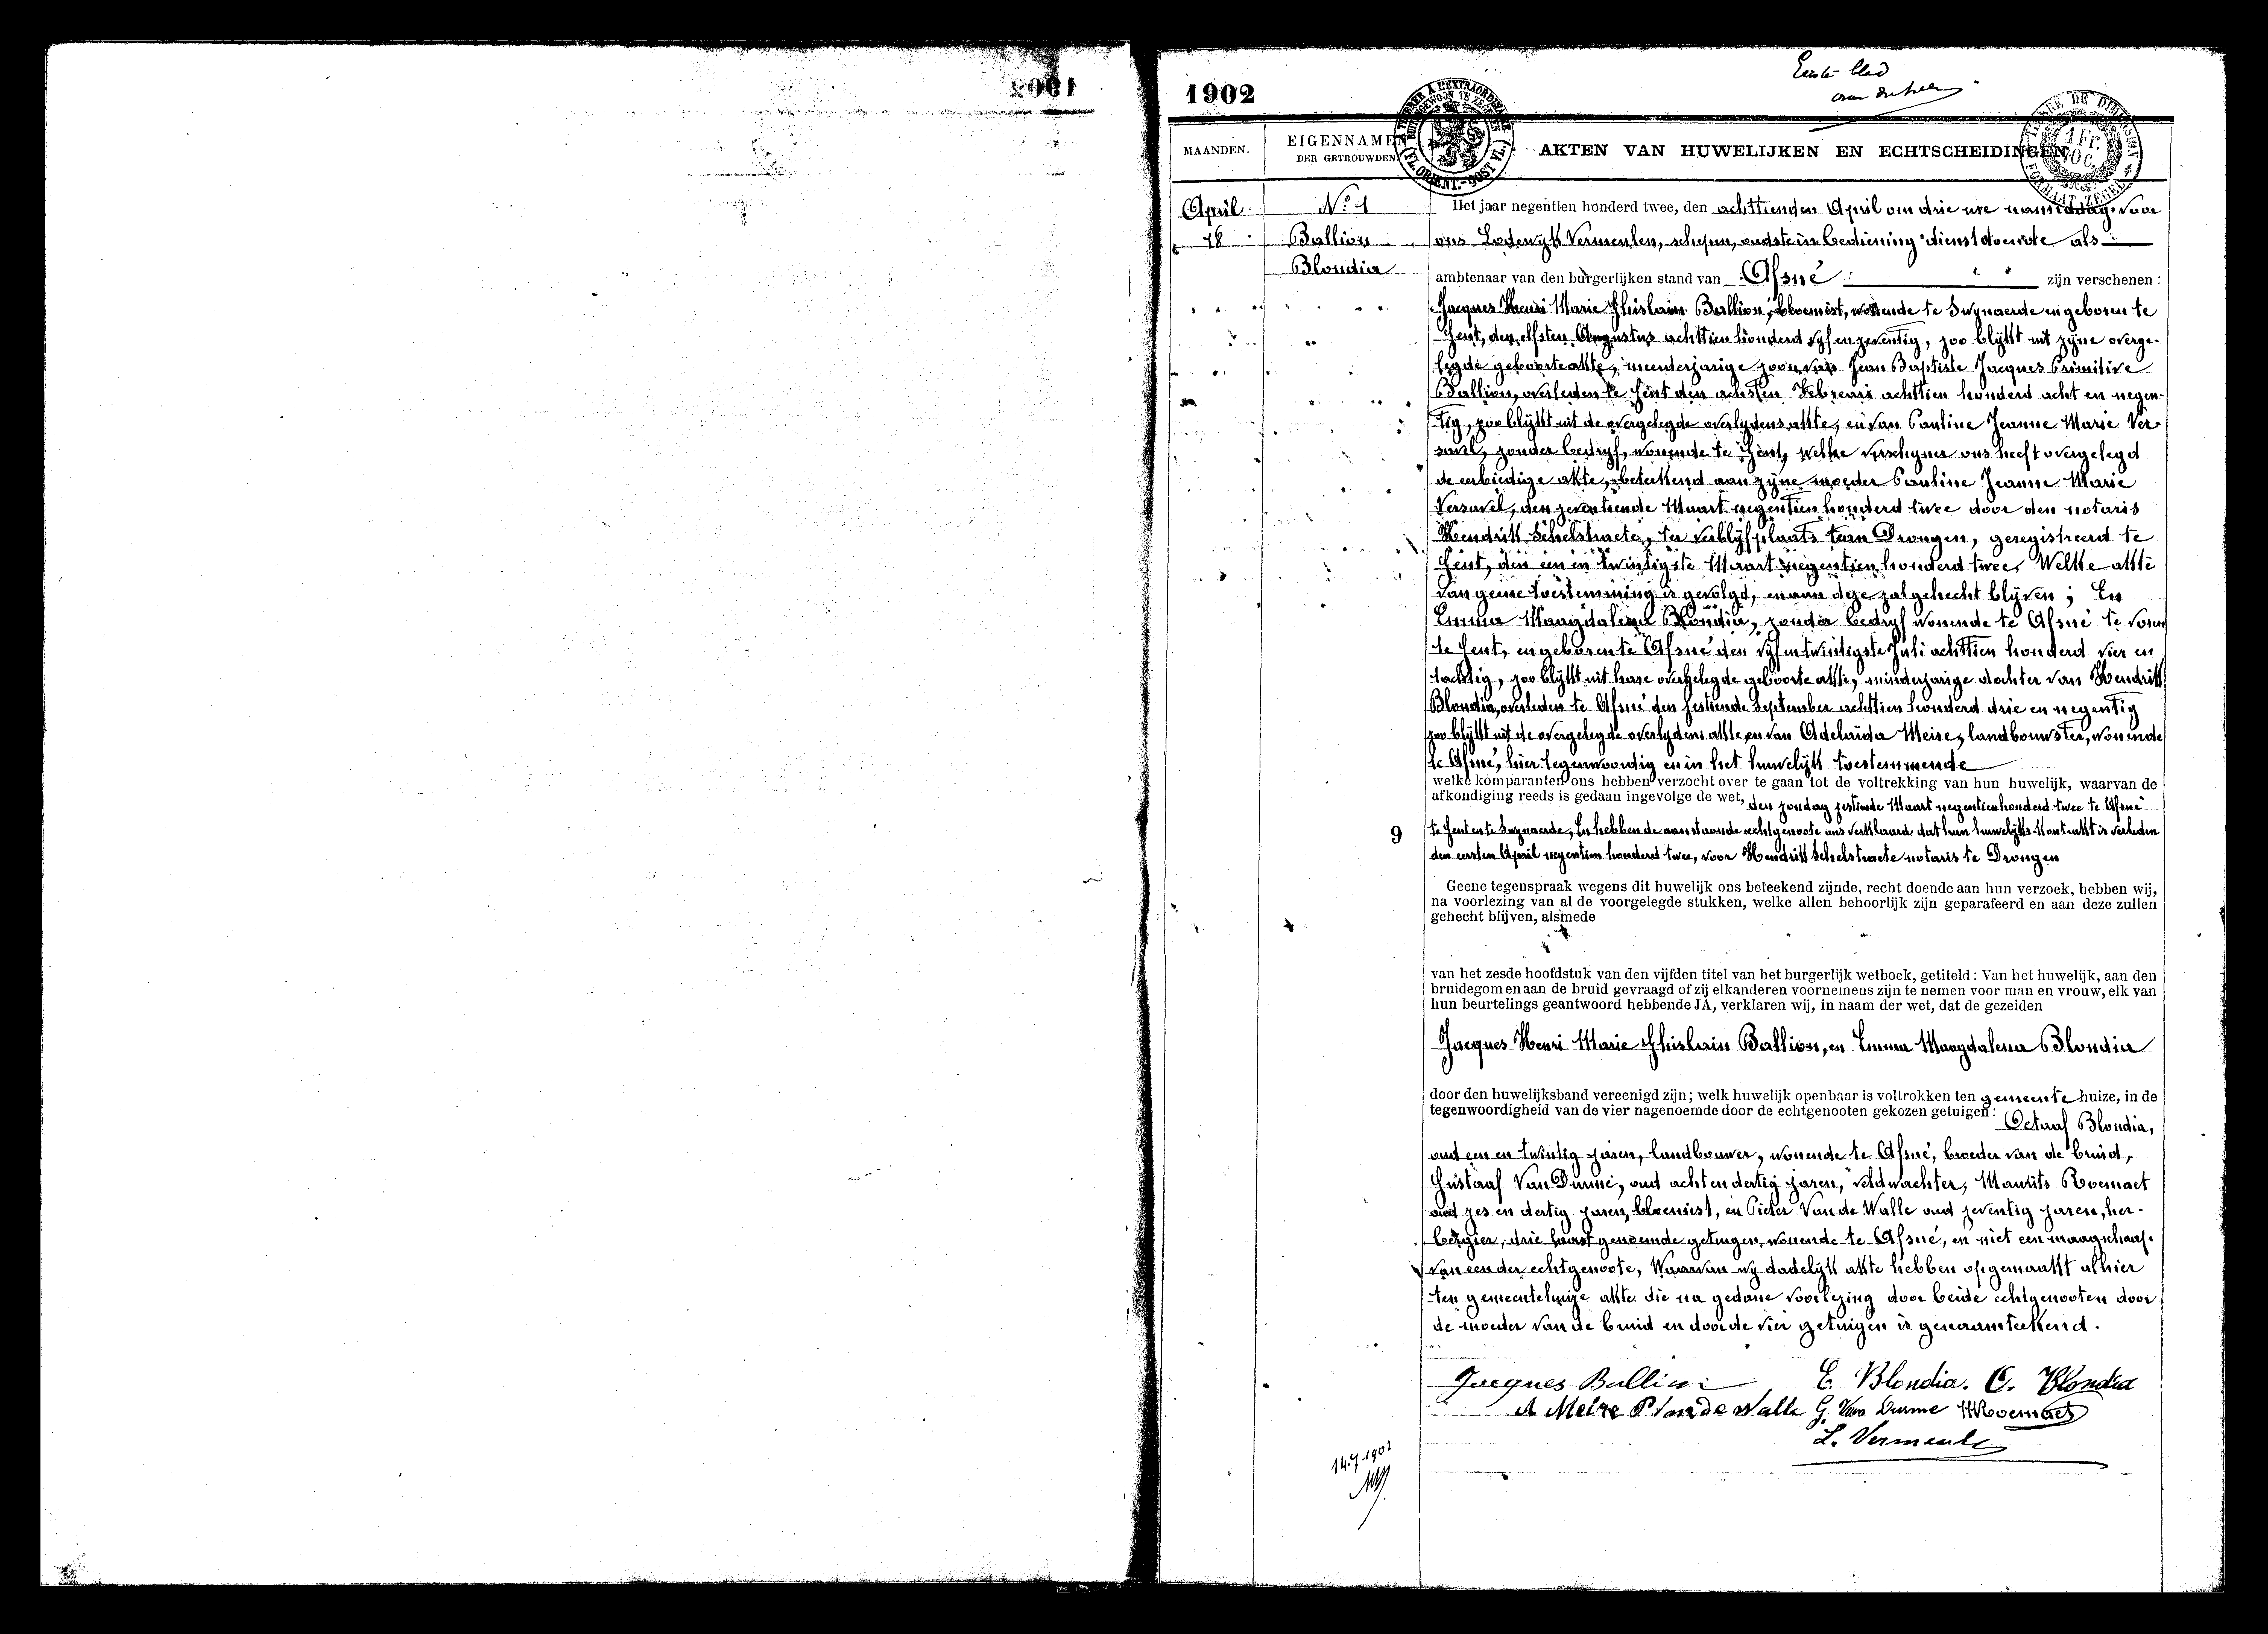 1902
Eerste blad
1902
MAANDEN.
EIGENNAMEN
DER GETROUWDEN
AKTEN VAN HUWELIJKEN EN ECHTSCHEIDINGEN
April
18
Nº 1
Ballion
Blondia
Het jaar negentien honderd twee, den achttienden April om drie ure namiddag voor
ons Lodewijk Vermeulen, schepen, oudste in bediening dienstdoende als
ambtenaar van den burgerlijken stand van Afsné zijn verschenen :
Jacques Henri Marie Ghislain Ballion, bloemist, wonende te Swynaerde en geboren te
Gent, den elfsten Augustus achttien honderd vyf en zeventig, zoo blykt uit zyne overge-
legde geboorteakte, meerderjarige zoon van Jean Baptiste Jacques Primitive
Ballion, overleden te Gent den achsten Februari achttien honderd acht en negen-
tig, zoo blykt uit de overgelegde overlydens akte, en van Pauline Jeanne Marie Ver-
savel, zonder bedryf, wonende te Gent, welke verschyner ons heeft overgelegd
de eerbiedige akte, beteekend aan zyne moeder Pauline Jeanne Marie
Versavel, den zeventiende Maart negentien honderd twee door den notaris
Hendrik Schelstraete, ter verblyfplaats van Drongen, geregistreerd te
Gent, den een en twintigste Maart negentien honderd twee, Welke akte
van geene toestemming is gevolgd, en aan deze zal gehecht blyven ; En
Emma Maagdalena Blondia, zonder bedryf wonende te Afsné te voren
te Gent, en geboren te Afsné den vyf en twintigste Juli achttien honderd vier en
tachtig, zoo blykt uit hare overgelegde geboorte akte, minderjarige dochter van Hendrik
Blondia, overleden te Afsné den zestiende September achttien honderd drie en negentig
zoo blykt uit de overgelegde overlydens akte, en van Adelaida Meire, landbouwster, wonende
te Afsné, hier tegenwoordig en in het huwelyk toestemmende
welke komparanten ons hebben verzocht over te gaan tot de voltrekking van hun huwelijk, waarvan de
afkondiging reeds is gedaan ingevolge de wet, den zondag zestiende Maart negentien honderd twee te Afsné
9
te Gent en te Swynaerde, En hebben de aanstaande echtgenoote ons verklaard dat hun huwelyks-kontrakt is verleden
den eersten April negentien honderd twee, voor Hendrik Schelstraete notaris te Drongen
Geene tegenspraak wegens dit huwelijk ons beteekend zijnde, recht doende aan hun verzoek, hebben wij,
na voorlezing van al de voorgelegde stukken, welke allen behoorlijk zijn geparafeerd en aan deze zullen
gehecht blijven, alsmede
van het zesde hoofdstuk van den vijfden titel van het burgerlijk wetboek, getiteld : Van het huwelijk, aan den
bruidegom en aan de bruid gevraagd of zij elkanderen voornemens zijn te nemen voor man en vrouw, elk van
hun beurtelings geantwoord hebbende JA, verklaren wij, in naam der wet, dat de gezeiden
Jacques Henri Marie Ghislain Ballion, en Emma Maagdalena Blondia
door den huwelijksband vereenigd zijn ; welk huwelijk openbaar is voltrokken ten gemeente huize, in de
tegenwoordigheid van de vier nagenoemde door de echtgenooten gekozen getuigen :
Octaaf Blondia,
oud een en twintig jaren, landbouwer, wonende te Afsné, broeder van de bruid,
Gustaaf Van Durme, oud acht en dertig jaren, veldwachter, Maurits Roernaet
oud zes en dertig jaren, bloemist, en Pieter Van de Walle oud zeventig jaren, her-
bergier, drie laast genoemde getuigen, wonende te Afsné, en niet een maagschap.
van een der echtgenoote, Waarvan wy dadelyk akte hebben opgemaakt alhier
ten gemeentehuize akte die na gedane voorlezing door beide echtgenooten door
de moeder van de bruid en door de vier getuigen is genaamteekend.
Jacques Ballion E. Blondia. O. Blondia
A Meire P Van de Walle G. Van Durme M Roernaet
L. Vermeule
14.7.1902